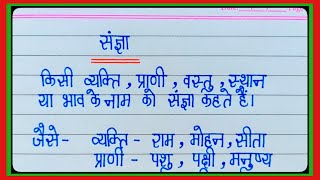 संज्ञा
किसी व्यक्ति, प्राणी, वस्तु, स्थान
या भाव के नाम को संज्ञा कहते हैं।
जैसे- व्यक्ति - राम, मोहन, सीता
प्राणी - पशु, पक्षी, मनुष्य